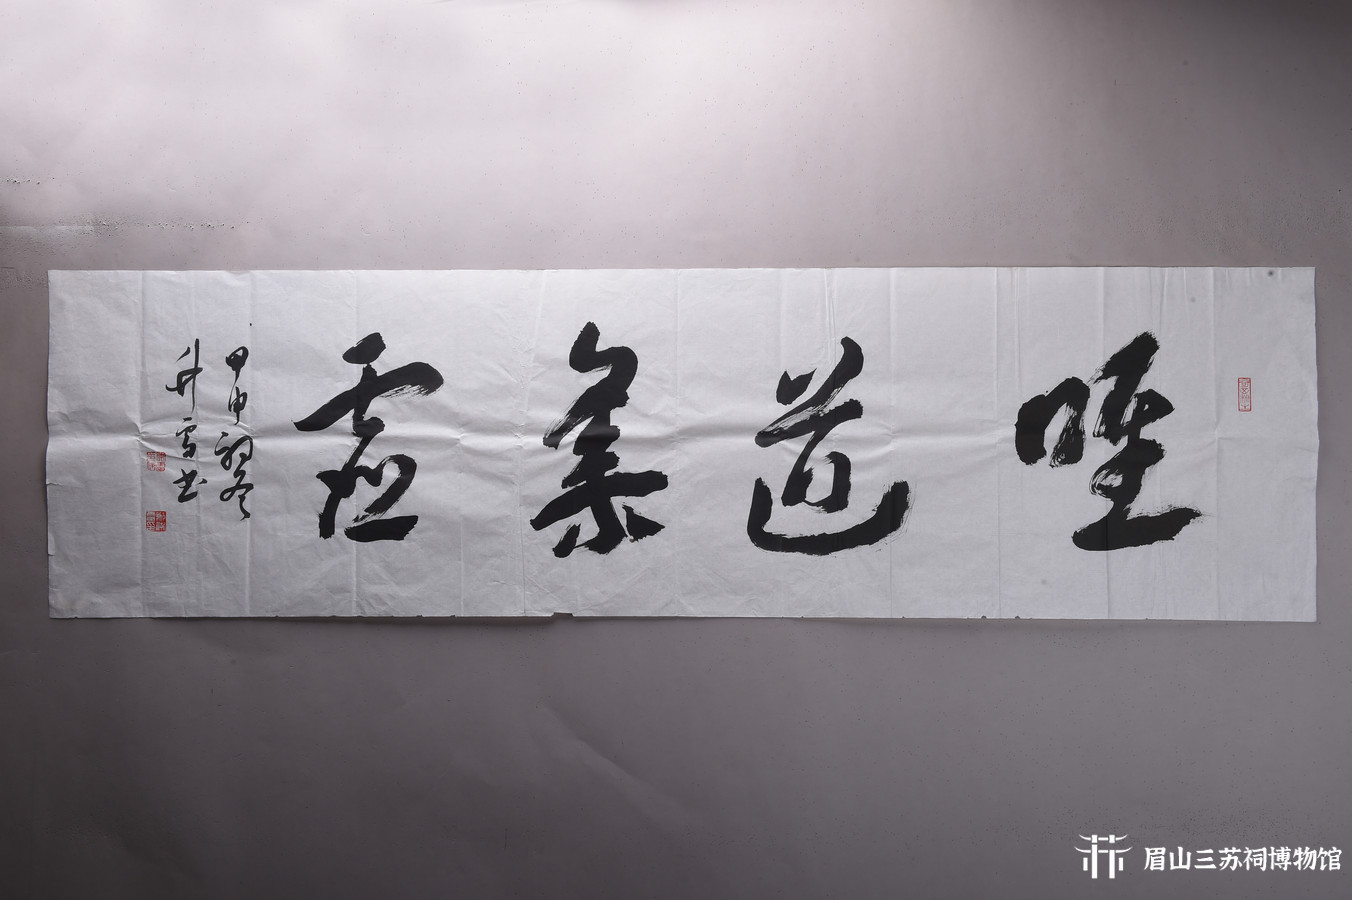 唯道集虚
甲申初冬
升雪书
眉山三苏祠博物馆